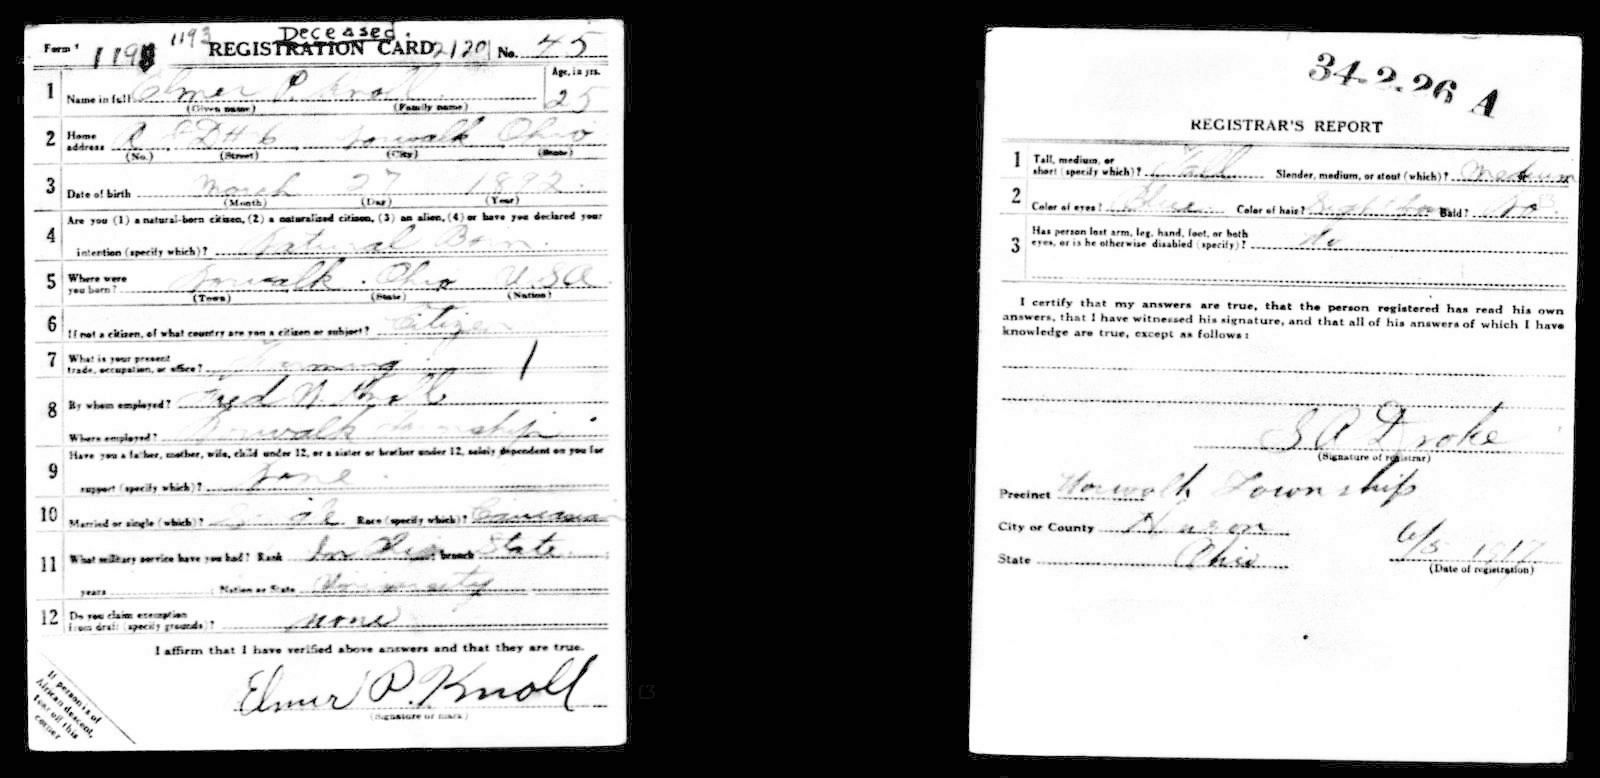 Deceased.
Form 1 1193 1193 REGISTRATION CARD 2120 No. 45
1 Name in full Elmer P. Knoll Age, in yrs. 25
(Given name) (Family name)
2 Home address R F D # 6 Norwalk Ohio
(No.) (Street) (City) (State)
3 Date of birth March 27 1892
(Month) (Day) (Year)
4 Are you (1) a natural-born citizen, (2) a naturalized citizen, (3) an alien, (4) or have you declared your
intention (specify which)? Natural Born
5 Where were you born? Norwalk Ohio U.S.A
(Town) (State) (Nation)
6 If not a citizen, of what country are you a citizen or subject? Citizen
7 What is your present trade, occupation, or office? Farming 1
8 By whom employed? Fred W. Knoll
Where employed? Norwalk Township
9 Have you a father, mother, wife, child under 12, or a sister or brother under 12, solely dependent on you for
support (specify which)? None
10 Married or single (which)? Single Race (specify which)? Caucasian
11 What military service have you had? Rank branch State
years Nation or State University
12 Do you claim exemption from draft (specify grounds)? none
I affirm that I have verified above answers and that they are true.
Elmer P. Knoll
(Signature or mark)
If person is of
African descent,
tear off this
corner
34-2-26 A
REGISTRAR'S REPORT
1 Tall, medium, or short (specify which)? Tall Slender, medium, or stout (which)? Medium
2 Color of eyes? Blue Color of hair? Light Brown Bald? No
3 Has person lost arm, leg, hand, foot, or both eyes, or is he otherwise disabled (specify)? No
I certify that my answers are true, that the person registered has read his own
answers, that I have witnessed his signature, and that all of his answers of which I have
knowledge are true, except as follows:
S A Drake
(Signature of registrar)
Precinct Norwalk Township
City or County Huron
State Ohio 6/5 1917
(Date of registration)